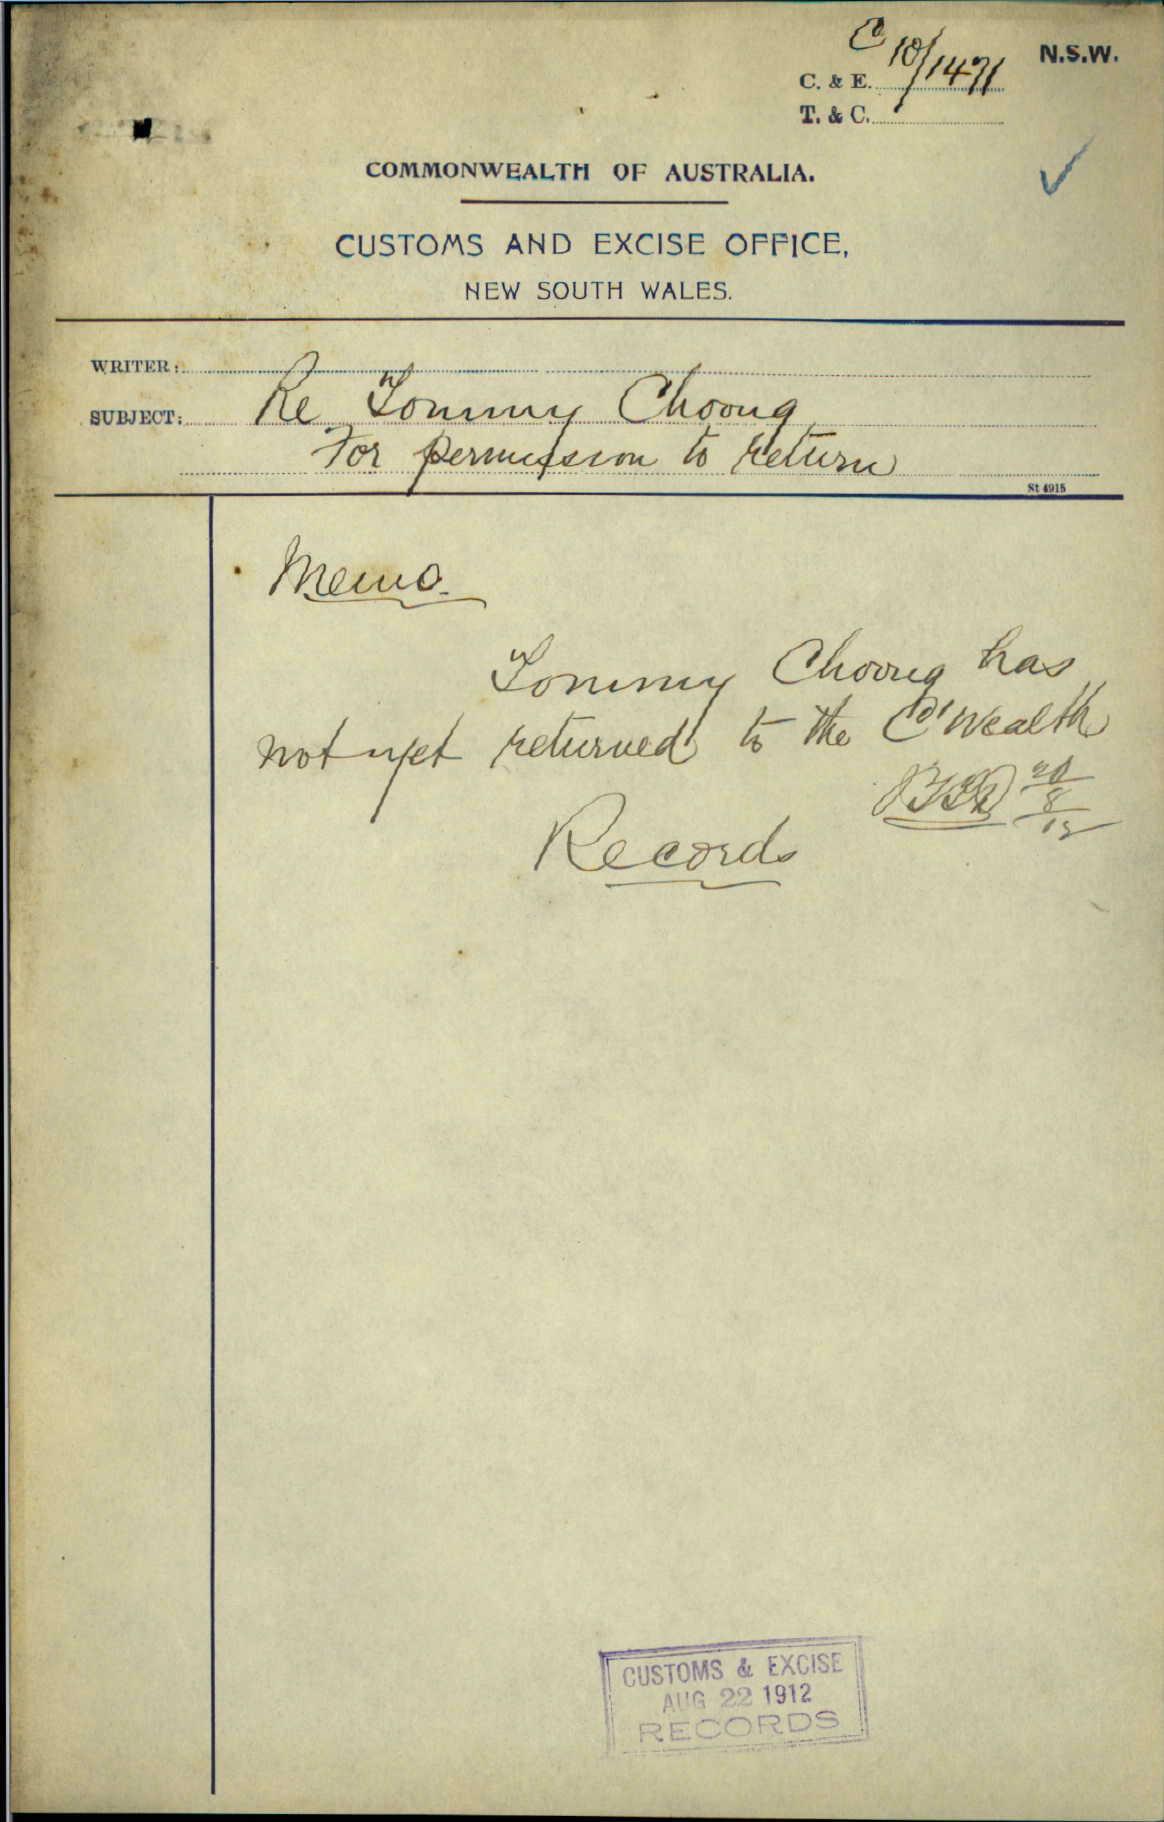 C 10/1471
N.S.W.
C. & E.
T. & C.
COMMONWEALTH OF AUSTRALIA.
CUSTOMS AND EXCISE OFFICE,
NEW SOUTH WALES.
WRITER:
SUBJECT: Re Tommy Choong
For permission to return
St 4915
Memo.
Tommy Choong has
not yet returned to the C'wealth
20/8/12
Records
CUSTOMS & EXCISE
AUG 22 1912
RECORDS